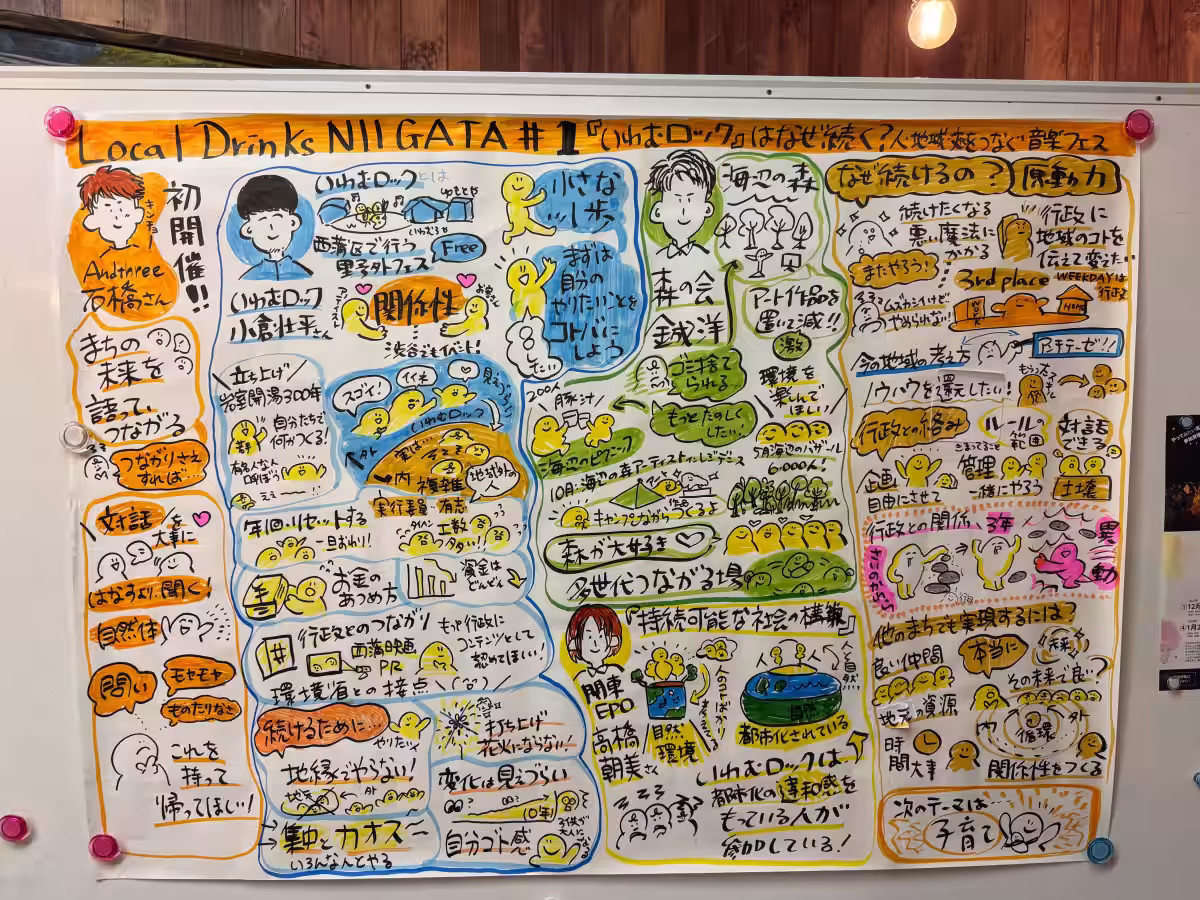 Local Drinks NIIGATA #1 『いわむロック』はなぜ続く?人・地域・夢をつなぐ音楽フェス
初開催!!
キンチョー
Andthree
石橋さん
まちの
未来を
語って、
つながる
つながりさえ
すれば…
対話を
大事に
はなすより、聞く!
自然体
問い
モヤモヤ
ものたりなさ
これを
持って
帰ってほしい!
いわむロックとは
西蒲区で行う
野外フェス
Free
いわむロック
小倉壮平さん
関係性
渋谷でもイベント!
小さな
一歩
まずは
自分の
やりたいことを
コトバに
しよう
立ち上げ
岩室開湯300年
自分たちで
何かつくる!
有名な人
呼ぼう!
スゴイ!
イイネ
いわむロック
実は…
外
内
複雑
地域外の
人
実行委員 有志
年1回・リセットする
一旦おわり!
お金の
あつめ方
資金は
どんどん
行政とのつながり
西蒲映画
PR
もっと行政に
コンテンツとして
認めてほしい!
環境省との接点
続けるために…
やりたい
地縁でやらない!
地元
外
集中とカオス
いろんなんとやる
打ち上げ
花火にならない!
変化は見えづらい
10年
自分ゴト感
子供が
大人に
海辺の森
森の会
鉞 洋
アート作品を
置いて減!!
激
ゴミ捨て
られる
環境を
楽しんで
ほしい!
もっとたのしく
したい…
200人
豚汁
海辺のピクニック
5月海辺のバザール
6000人!
10月・海辺の森アーティストインレジデンス
キャンプしながらつくるよ
森が大好き
多世代つながる場
『持続可能な社会の構築』
関東
EPO
高橋
朝美さん
自然
環境
人と自然
都市化されている
いわむロックは、
都市化の違和感を
もっている人が
参加している!
なぜ続けるの?
原動力
続けたくなる
悪い魔法に
かかる
またやろう!
ムズカシイけど
やめられない!
行政に
地域のコトを
伝えて変った…
3rd place
WEEKDAYは
行政
WORK
HOME
アンチテーゼ!!
今の地域の考え方
ノウハウを還元したい!
行政との絡み
ルールの
範囲
対話
できる
企画
自由にさせて
管理
一緒にやろう
土壌
行政との関係、3年
異動
他のまちでも実現するには?
良い仲間
本当に
未来
その未来で良い?
地元の資源
内
外
循環
時間大事
関係性をつくる
次のテーマは…
子育て